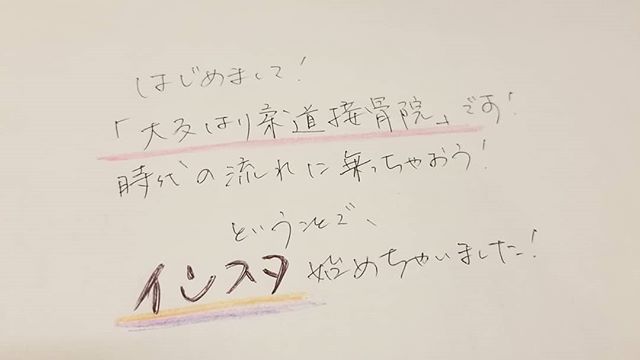 はじめまして!
「大友はり柔道接骨院」です!
時代の流れに乗っちゃおう!
ということで、
インスタ始めちゃいました!